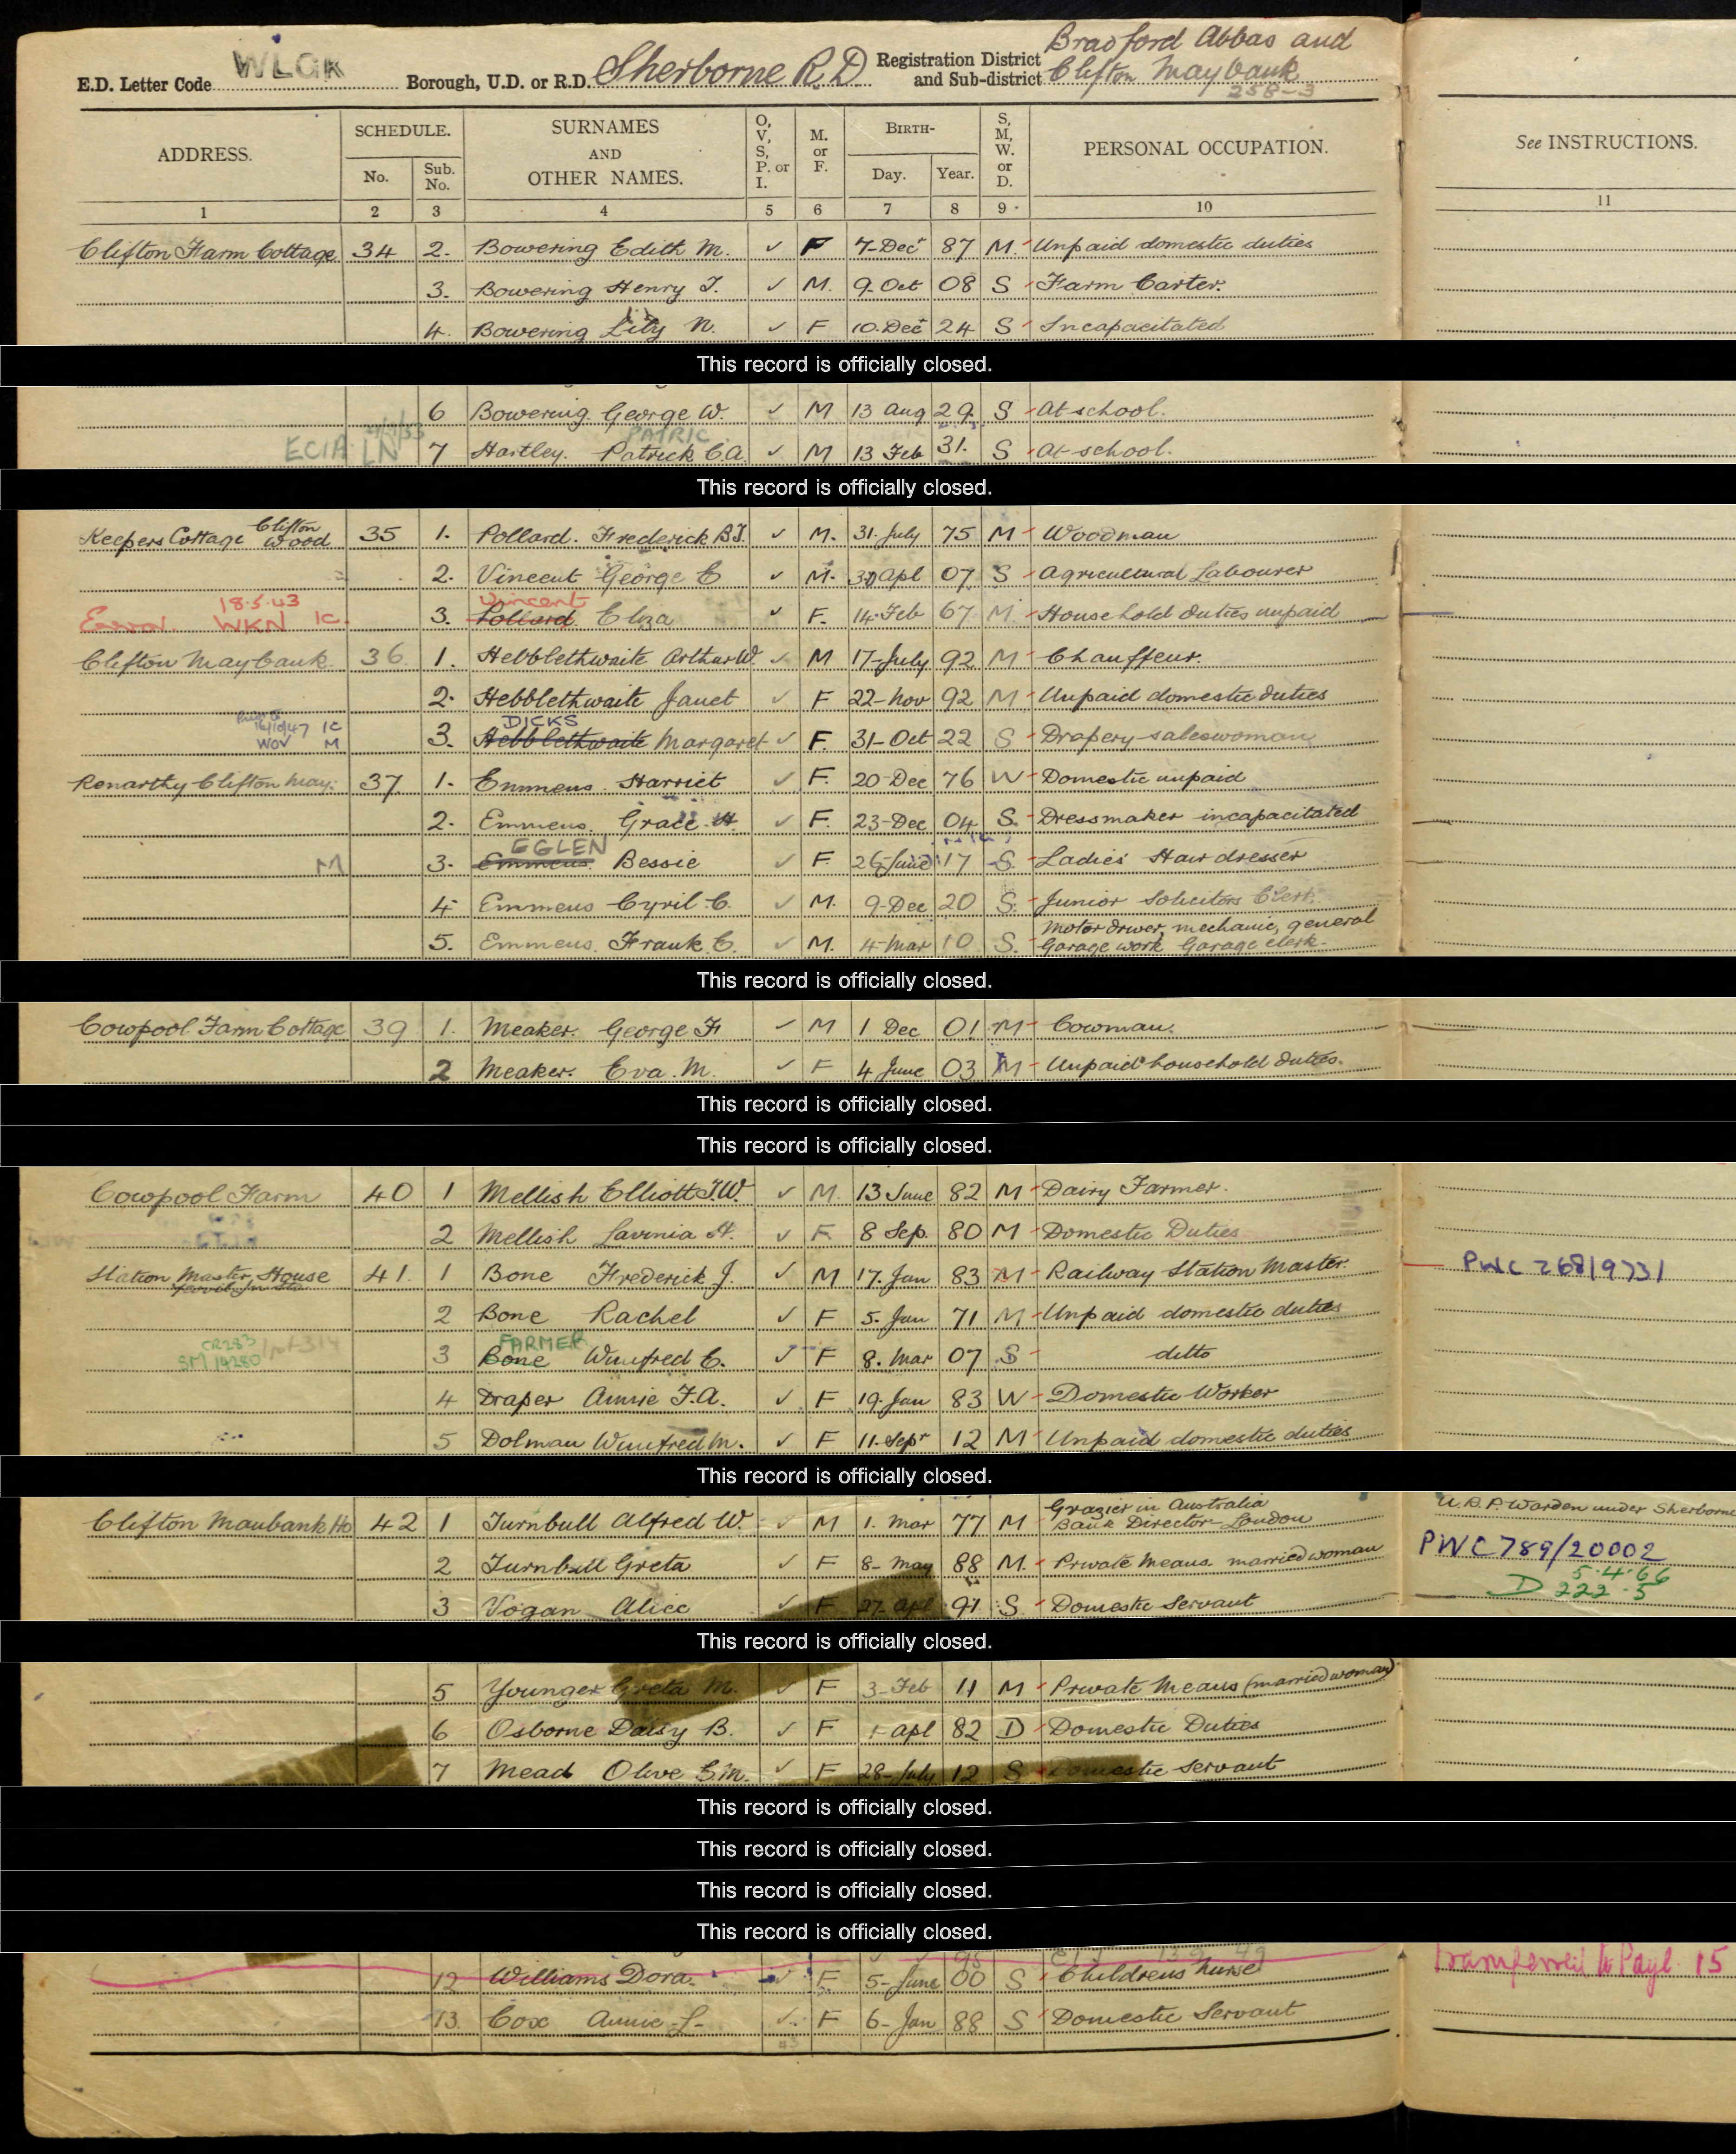 E.D. Letter Code WLGK Borough, U.D. or R.D. Sherborne R.D Registration District and Sub-district Bradford Abbas and Clifton Maybank 258-3
ADDRESS. SCHEDULE. No. Sub. No. SURNAMES AND OTHER NAMES. O, V, S, P. or I. M. or F. BIRTH- Day. Year. S, M, W. or D. PERSONAL OCCUPATION. See INSTRUCTIONS.
1 2 3 4 5 6 7 8 9 10 11
Clifton Farm Cottage 34 2. Bowering Edith M. ✓ F 7-Dec 87 M. Unpaid domestic duties
3. Bowering Henry J. ✓ M. 9 Oct 08 S Farm Carter.
4. Bowering Lily N. ✓ F 10.Dec 24 S Incapacitated
This record is officially closed.
6 Bowering. George W. ✓ M 13 Aug 29. S At school.
PATRIC
ECIA LN 7 Hartley. Patrick C.A. ✓ M 13 Feb 31. S At school.
This record is officially closed.
Keepers Cottage Clifton Wood 35 1. Pollard. Frederick B.J. ✓ M. 31 July 75 M Woodman
2. Vincent George E ✓ M. 30 Apl 07 S Agricultural Labourer
18.5.43 Vincent
Error. WKN IC. 3. Pollard. Eliza ✓ F. 14 Feb 67 M Household duties unpaid
Clifton Maybank. 36 1. Hebblethwaite Arthur W. ✓ M 17-July 92 M Chauffeur.
2. Hebblethwaite Janet ✓ F 22-Nov 92 M Unpaid domestic duties
16/10/47 IC DICKS
WOV M 3. Hebblethwaite Margaret ✓ F. 31-Oct 22 S Drapery saleswoman
Kenarthy Clifton May: 37 1. Emmens. Harriet ✓ F. 20 Dec 76 W Domestic unpaid
2. Emmens. Grace H. ✓ F. 23-Dec 04 S. Dressmaker incapacitated
EGLEN
M 3. Emmens. Bessie ✓ F. 26 June 17 S. Ladies' Hairdresser
4 Emmens Cyril C. ✓ M. 9-Dec 20 S. Junior Solicitors Clerk.
Motor driver, mechanic, general
5. Emmens. Frank C. ✓ M. 4-Mar 10 S. Garage work Garage clerk.
This record is officially closed.
Cowpool Farm Cottage 39 1. Meaker. George F ✓ M 1 Dec 01 M Cowman.
2 Meaker. Eva. M. ✓ F 4 June 03 M Unpaid household duties.
This record is officially closed.
This record is officially closed.
Cowpool Farm 40 1 Mellish Elliott J.W. ✓ M. 13 June 82 M Dairy Farmer.
2 Mellish Lavinia H. ✓ F. 8 Sep. 80 M Domestic Duties
Station Master, House 41. 1 Bone Frederick J. ✓ M 17. Jan 83 M Railway Station Master. PWC 268/9731
2 Bone Rachel ✓ F 5. Jan 71 M Unpaid domestic duties
CR283 FARMER
SM 19280 3 Bone Winifred E. ✓ F 8. Mar 07 S ditto
4 Draper Annie F.A. ✓ F 19. Jan 83 W Domestic Worker
5 Dolman Winifred M. ✓ F 11. Sept 12 M Unpaid domestic duties
This record is officially closed.
Grazier in Australia
Clifton Maubank Ho 42 1 Turnbull Alfred W. ✓ M 1. Mar 77 M Bank Director-London A.R.P. Warden under Sherborne
2 Turnbull Greta ✓ F 8-May 88 M. Private Means. married woman PWC 789/20002
5.4.66
3 Vogan Alice ✓ F 27 Apl 91 S Domestic Servant D 222.5
This record is officially closed.
5 Younger Greta M. ✓ F 3-Feb 11 M Private Means (married woman)
6 Osborne Daisy B. ✓ F 1 Apl 82 D Domestic Duties
7 Mead Olive E.M. ✓ F 28-July 12 S Domestic Servant
This record is officially closed.
This record is officially closed.
This record is officially closed.
This record is officially closed.
12 Williams Dora. ✓ F 5-June 00 S Childrens nurse Transferred to Page 15
13. Cox Annie L ✓ F 6-Jan 88 S Domestic Servant